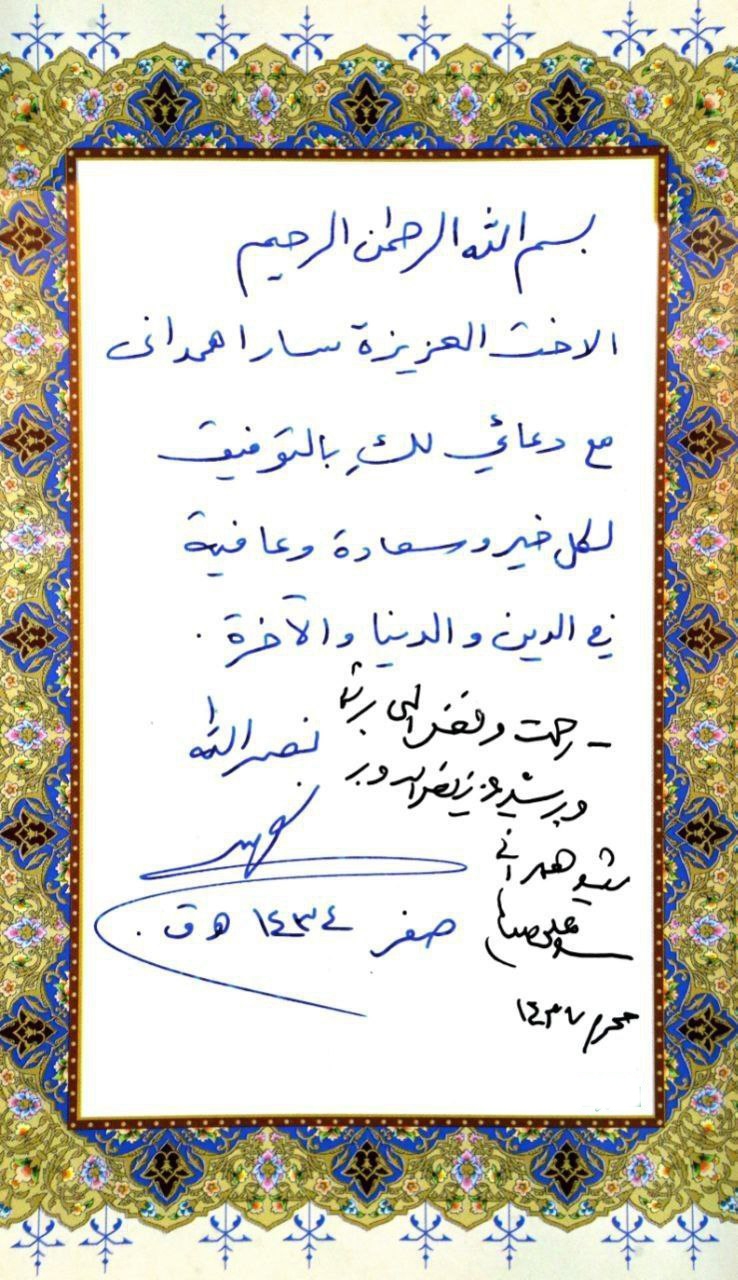 بسم الله الرحمن الرحيم
الاخت العزيزة سارا همدانى
مع دعائي لكِ بالتوفيق
لكل خير وسعادة وعافية
في الدين والدنيا والآخرة .
نصر الله
صفر ١٤٣٤ هـ ق .
– رحمت و فضل الهی بر شما
و بر شهید عزیز نصرالله و بر
شهید همدانی
سید علی
محرم ١٤٣٧